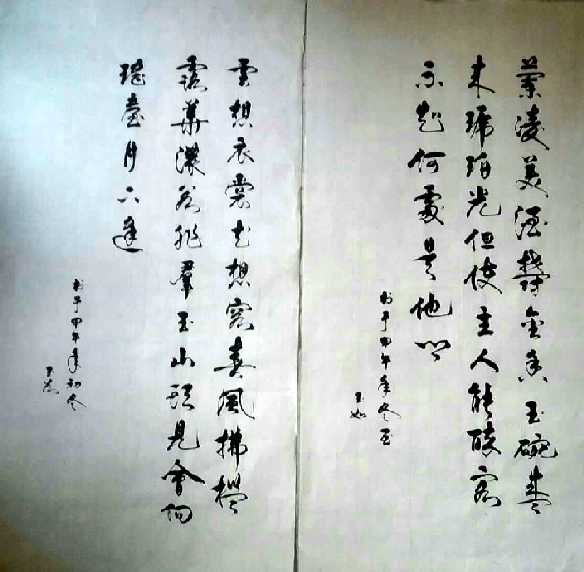 蘭陵美酒鬱金香玉碗盛
來琥珀光但使主人能醉客
不知何處是他鄉
书于甲午年冬至
雲想衣裳花想容春風拂檻
露華濃若非羣玉山頭見會向
瑤臺月下逢
书于甲午年初冬